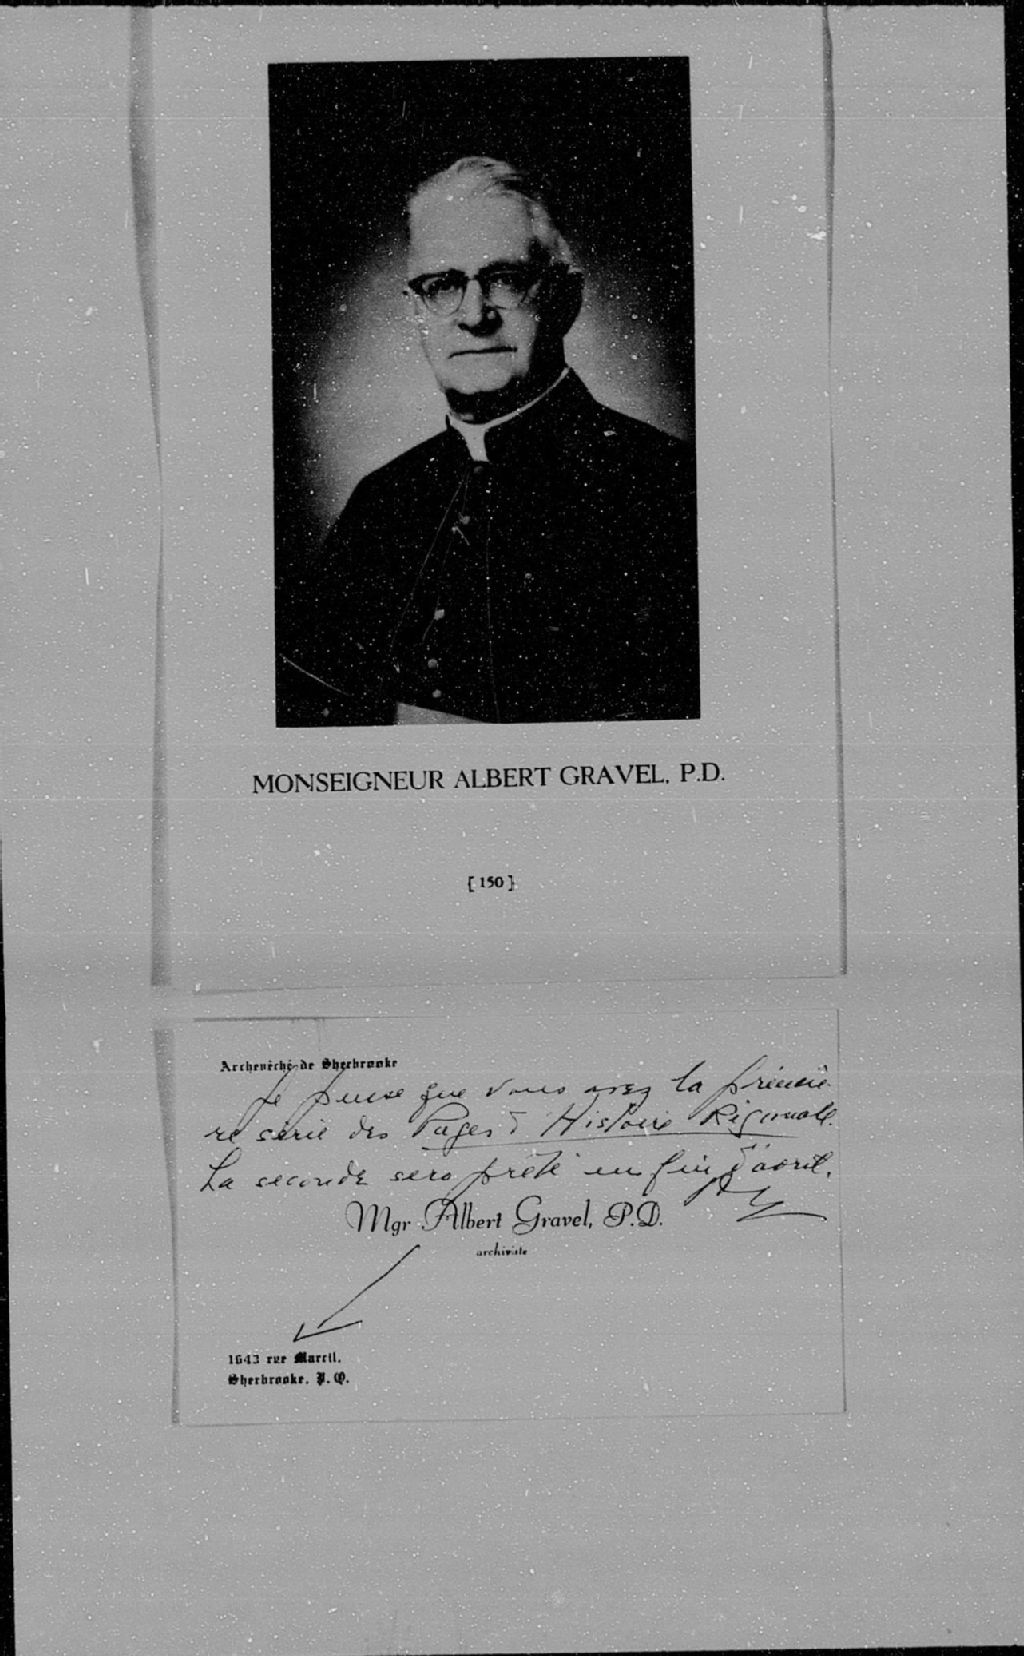 MONSEIGNEUR ALBERT GRAVEL, P.D.
[ 150 ]
Archevêché de Sherbrooke
Je pense que vous avez la premiè
re série des Pages d'Histoire Régionale.
La seconde sera prête en fin d'avril.
Mgr Albert Gravel, P.D.
archiviste
1643 rue Marcil,
Sherbrooke, P. Q.